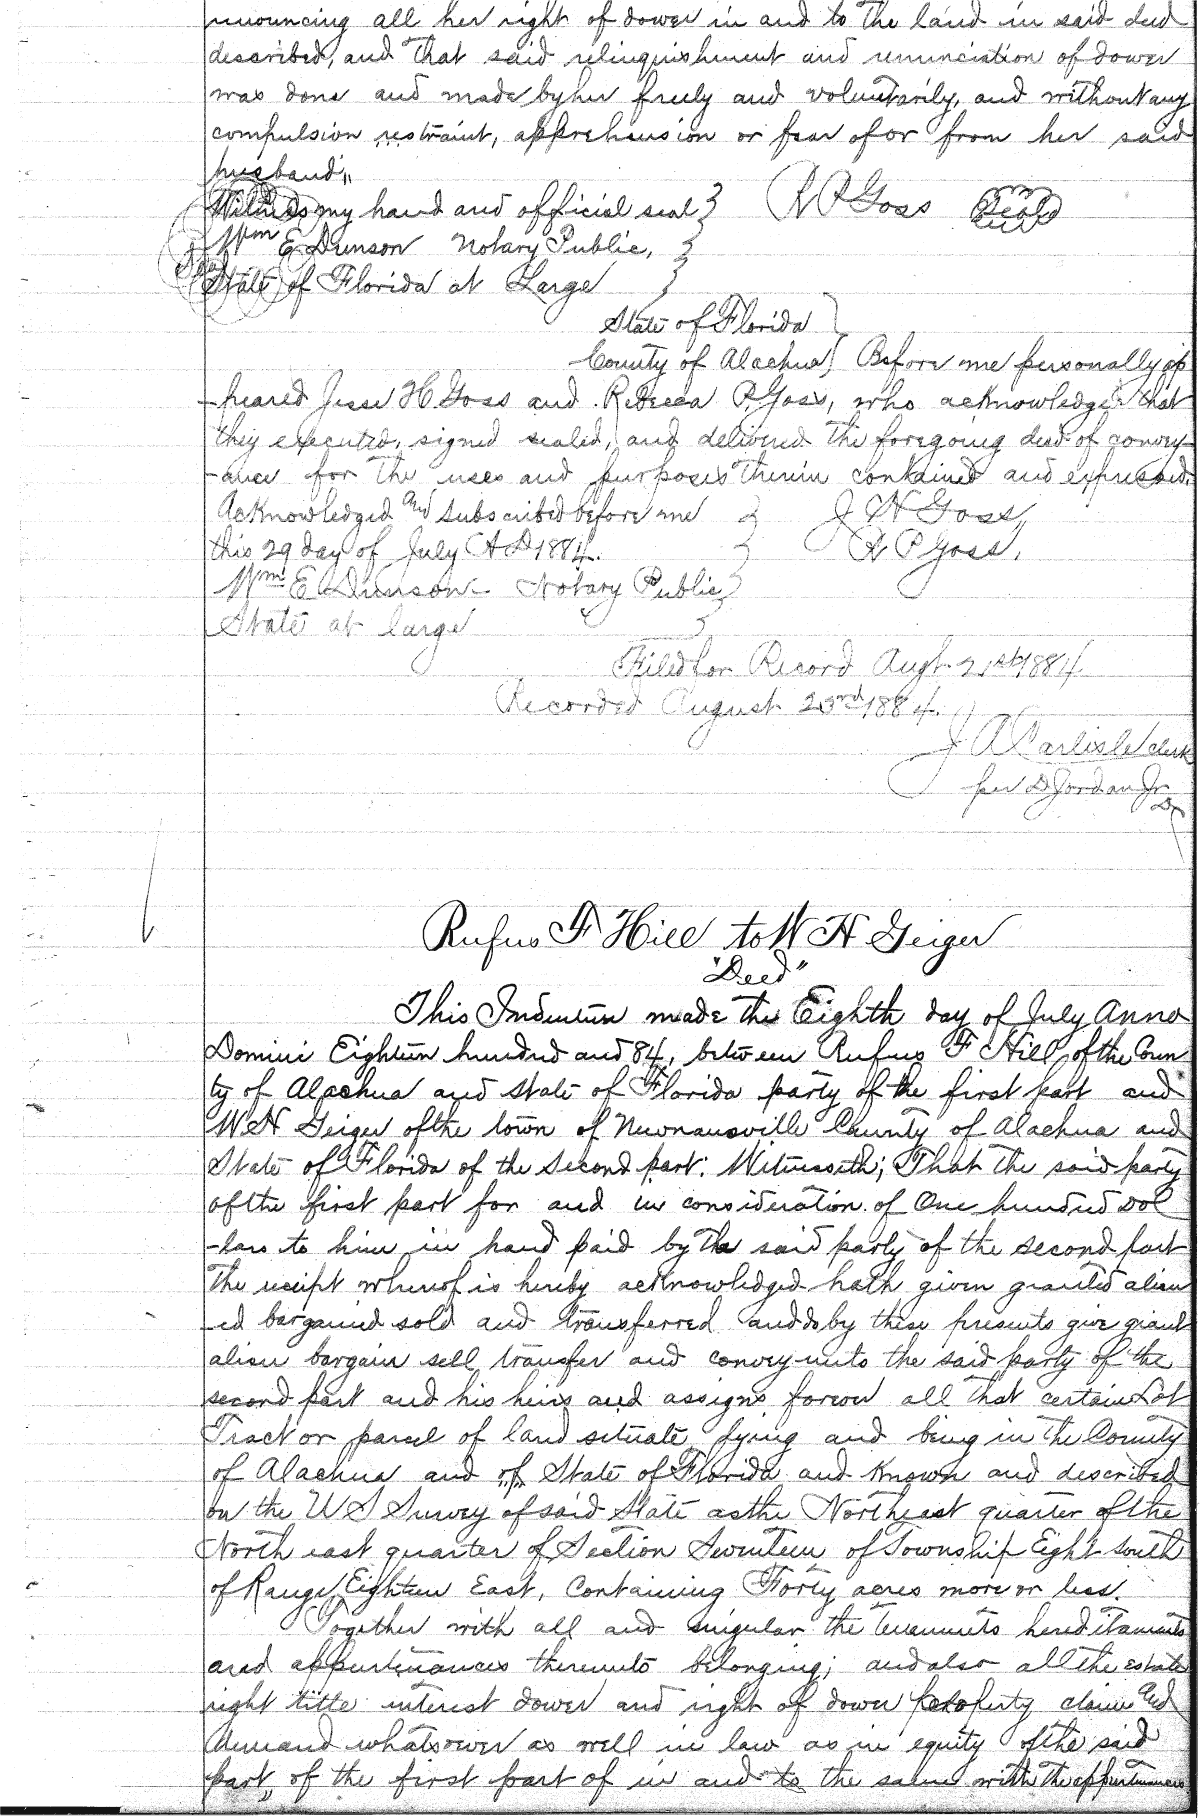 renouncing all her right of dower in and to the land in said deed
described, and that said relinquishment and renunciation of dower
was done and made by her freely and voluntarily, and without any
compulsion restraint, apprehension or fear of or from her said
husband"
Witness my hand and official seal } R P Goss Seal
Wm E Dunson Notary Public, }
State of Florida at Large }
State of Florida }
County of Alachua } Before me personally ap
-peared Jesse H Goss and Rebecca P. Goss, who acknowledge that
they executed, signed sealed, and delivered the foregoing deed of convey-
-ance for the uses and purposes therein contained and expressed.
Acknowledged and subscribed before me } J H Goss,
this 29 day of July A D 1884. } R P Goss.
Wm E Dunson - Notary Public }
State at large }
Filed for Record Augt. 21st 1884
Recorded August 23rd 1884.
J A Carlisle Clerk
per D Jordan Jr
D
Rufus F Hill to W H Geiger
"Deed"
This Indenture made the Eighth day of July Anno
Domini Eighteen hundred and 84, between Rufus F Hill, of the Coun
ty of Alachua and state of Florida party of the first part and
W H Geiger of the town of Newnansville County of Alachua and
State of Florida of the second part. Witnesseth; That the said party
of the first part for and in consideration of One hundred Dol
-lars to him in hand paid by the said party of the second part
the receipt whereof is hereby acknowledged hath given granted alien
-ed bargained sold and transferred and do by these presents give grant
alien bargain sell transfer and convey unto the said party of the
second part and his heirs and assigns forever all that certain Lot
Tract or parcel of land situate lying and being in the County
of Alachua and of State of Florida and known and described
on the U S Survey of said State as the Northeast quarter of the
North east quarter of Section Seventeen of Township Eight south
of Range Eighteen East, Containing Forty acres more or less.
Together with all and singular the tenements hereditaments
and appurtenances thereunto belonging; and also all the estate
right title interest dower and right of dower property claim and
demand whatsoever as well in law as in equity of the said
part, of the first part of in and to the same with the appurtenances